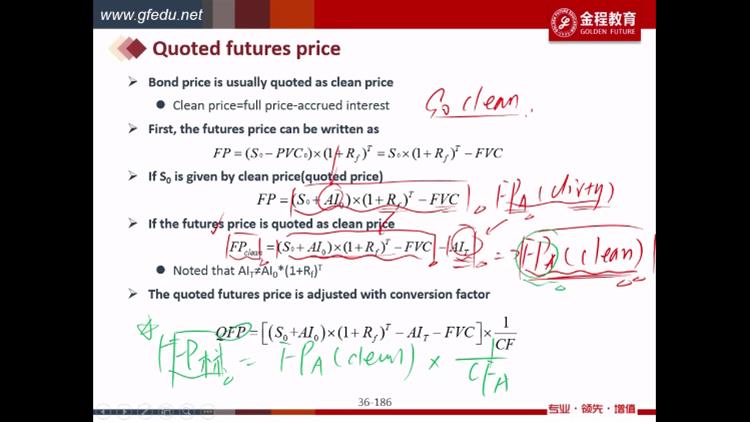 www.gfedu.net
金程教育
GOLDEN FUTURE
Quoted futures price
➢ Bond price is usually quoted as clean price
● Clean price=full price-accrued interest
S₀ clean.
➢ First, the futures price can be written as
FP = (S₀ − PVC₀)×(1+R_f)^T = S₀×(1+R_f)^T − FVC
➢ If S₀ is given by clean price(quoted price)
FP = (S₀ + AI₀)×(1+R_f)^T − FVC FP_A (dirty)
➢ If the futures price is quoted as clean price
FP_clean = (S₀ + AI₀)×(1+R_f)^T − FVC − AI_T = FP_A (clean)
● Noted that AI_T≠AI₀*(1+R_f)^T
➢ The quoted futures price is adjusted with conversion factor
QFP = [(S₀+AI₀)×(1+R_f)^T − AI_T − FVC]×1/CF
FP标 = FP_A (clean) × 1/CF_A
36-186
专业·领先·增值